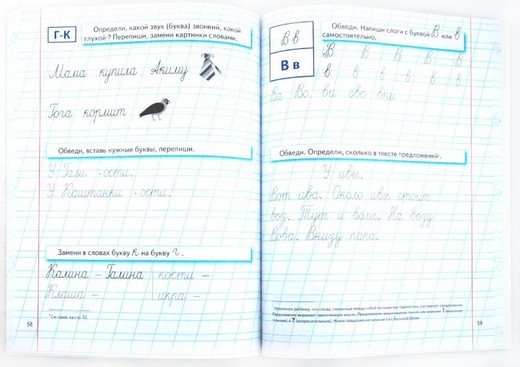 Г-К
Определи, какой звук (буква) звонкий, какой
глухой? Перепиши, замени картинки словами.
Мама купила Акиму
Гога кормит
Обведи, вставь нужные буквы, перепиши.
У Гали . ости.
У Каштанки . ости.
Замени в словах букву К на букву г.
Калина – Галина кости –
Клаша – икра –
* См. прим. на стр. 53.
58
В в
В в
Обведи. Напиши слоги с буквой В или в
самостоятельно.
В В В В В
в в в в в в в
Ва Во ви ово вы
Обведи. Определи, сколько в тексте предложений*.
У ивы.
Вот ива. Около ивы стоит
воз. Тут и волы. На возу
Вова. Внизу папа.
59